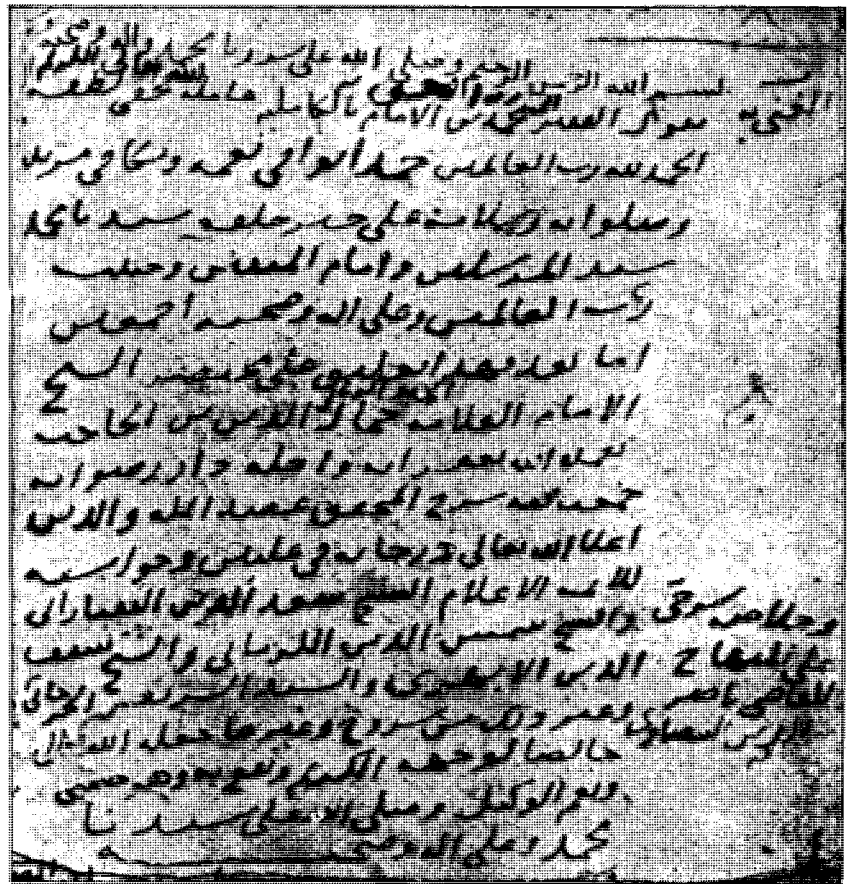 بسم الله الرحمن الرحيم وصلى الله على سيدنا محمد واله وصحبه
يقول الفقير محمد بن الامام بالكاملية عامله الله تعالى بلطفه
الحمد لله رب العالمين حمدا يوافي نعمه ويكافي مزيده
وصلواته وسلامه على خير خلقه سيدنا محمد
سيد المرسلين وامام المتقين وحبيب
رب العالمين وعلى اله وصحبه اجمعين
اما بعد فهذا تعليق على مختصر الشيخ
الامام العلامة جمال الدين بن الحاجب
تغمده الله بغفرانه واحله دار رضوانه
جمعت فيه شرح المحقق عضد الملة والدين
اعلا الله تعالى درجاته في عليين وحواشيه
للائمة الاعلام الشيخ سعد الدين التفتازاني
والشيخ شمس الدين الكرماني والشيخ سيف
الدين الابهري والسيد الشريف الجرجاني
وغير ذلك من شروح وغيرها جعله الله تعالى
خالصا لوجهه الكريم ونفع به وهو حسبي
ونعم الوكيل وصلى الله على سيدنا
محمد وعلى اله وصحبه
وخلاصة شرحي
على المنهاج
للقاضي ناصر
الدين البيضاوي